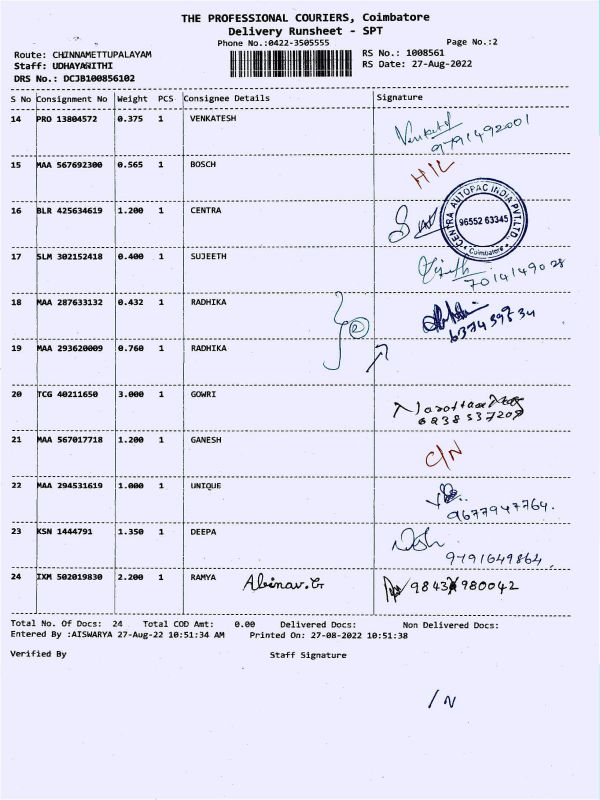 THE PROFESSIONAL COURIERS, Coimbatore
Delivery Runsheet - SPT
Phone No.:0422-3505555 Page No.:2
Route: CHINNAMETTUPALAYAM RS No.: 1008561
Staff: UDHAYANITHI RS Date: 27-Aug-2022
DRS No.: DCJB100856102
S No Consignment No Weight PCS Consignee Details Signature
14 PRO 13804572 0.375 1 VENKATESH
9791492001
15 MAA 567692300 0.565 1 BOSCH H/L
16 BLR 425634619 1.200 1 CENTRA
CENTRA AUTOPAC INDIA PVT.LTD.
96552 63345
Coimbatore
17 SLM 302152418 0.400 1 SUJEETH
7014149028
18 MAA 287633132 0.432 1 RADHIKA
2
19 MAA 293620009 0.760 1 RADHIKA
20 TCG 40211650 3.000 1 GOWRI
21 MAA 567017718 1.200 1 GANESH C/N
22 MAA 294531619 1.000 1 UNIQUE
9677947764.
23 KSN 1444791 1.350 1 DEEPA
9791649864.
24 IXM 502019830 2.200 1 RAMYA Abinav.G 9843 980042
Total No. Of Docs: 24 Total COD Amt: 0.00 Delivered Docs: Non Delivered Docs:
Entered By :AISWARYA 27-Aug-22 10:51:34 AM Printed On: 27-08-2022 10:51:38
Verified By Staff Signature
/ N